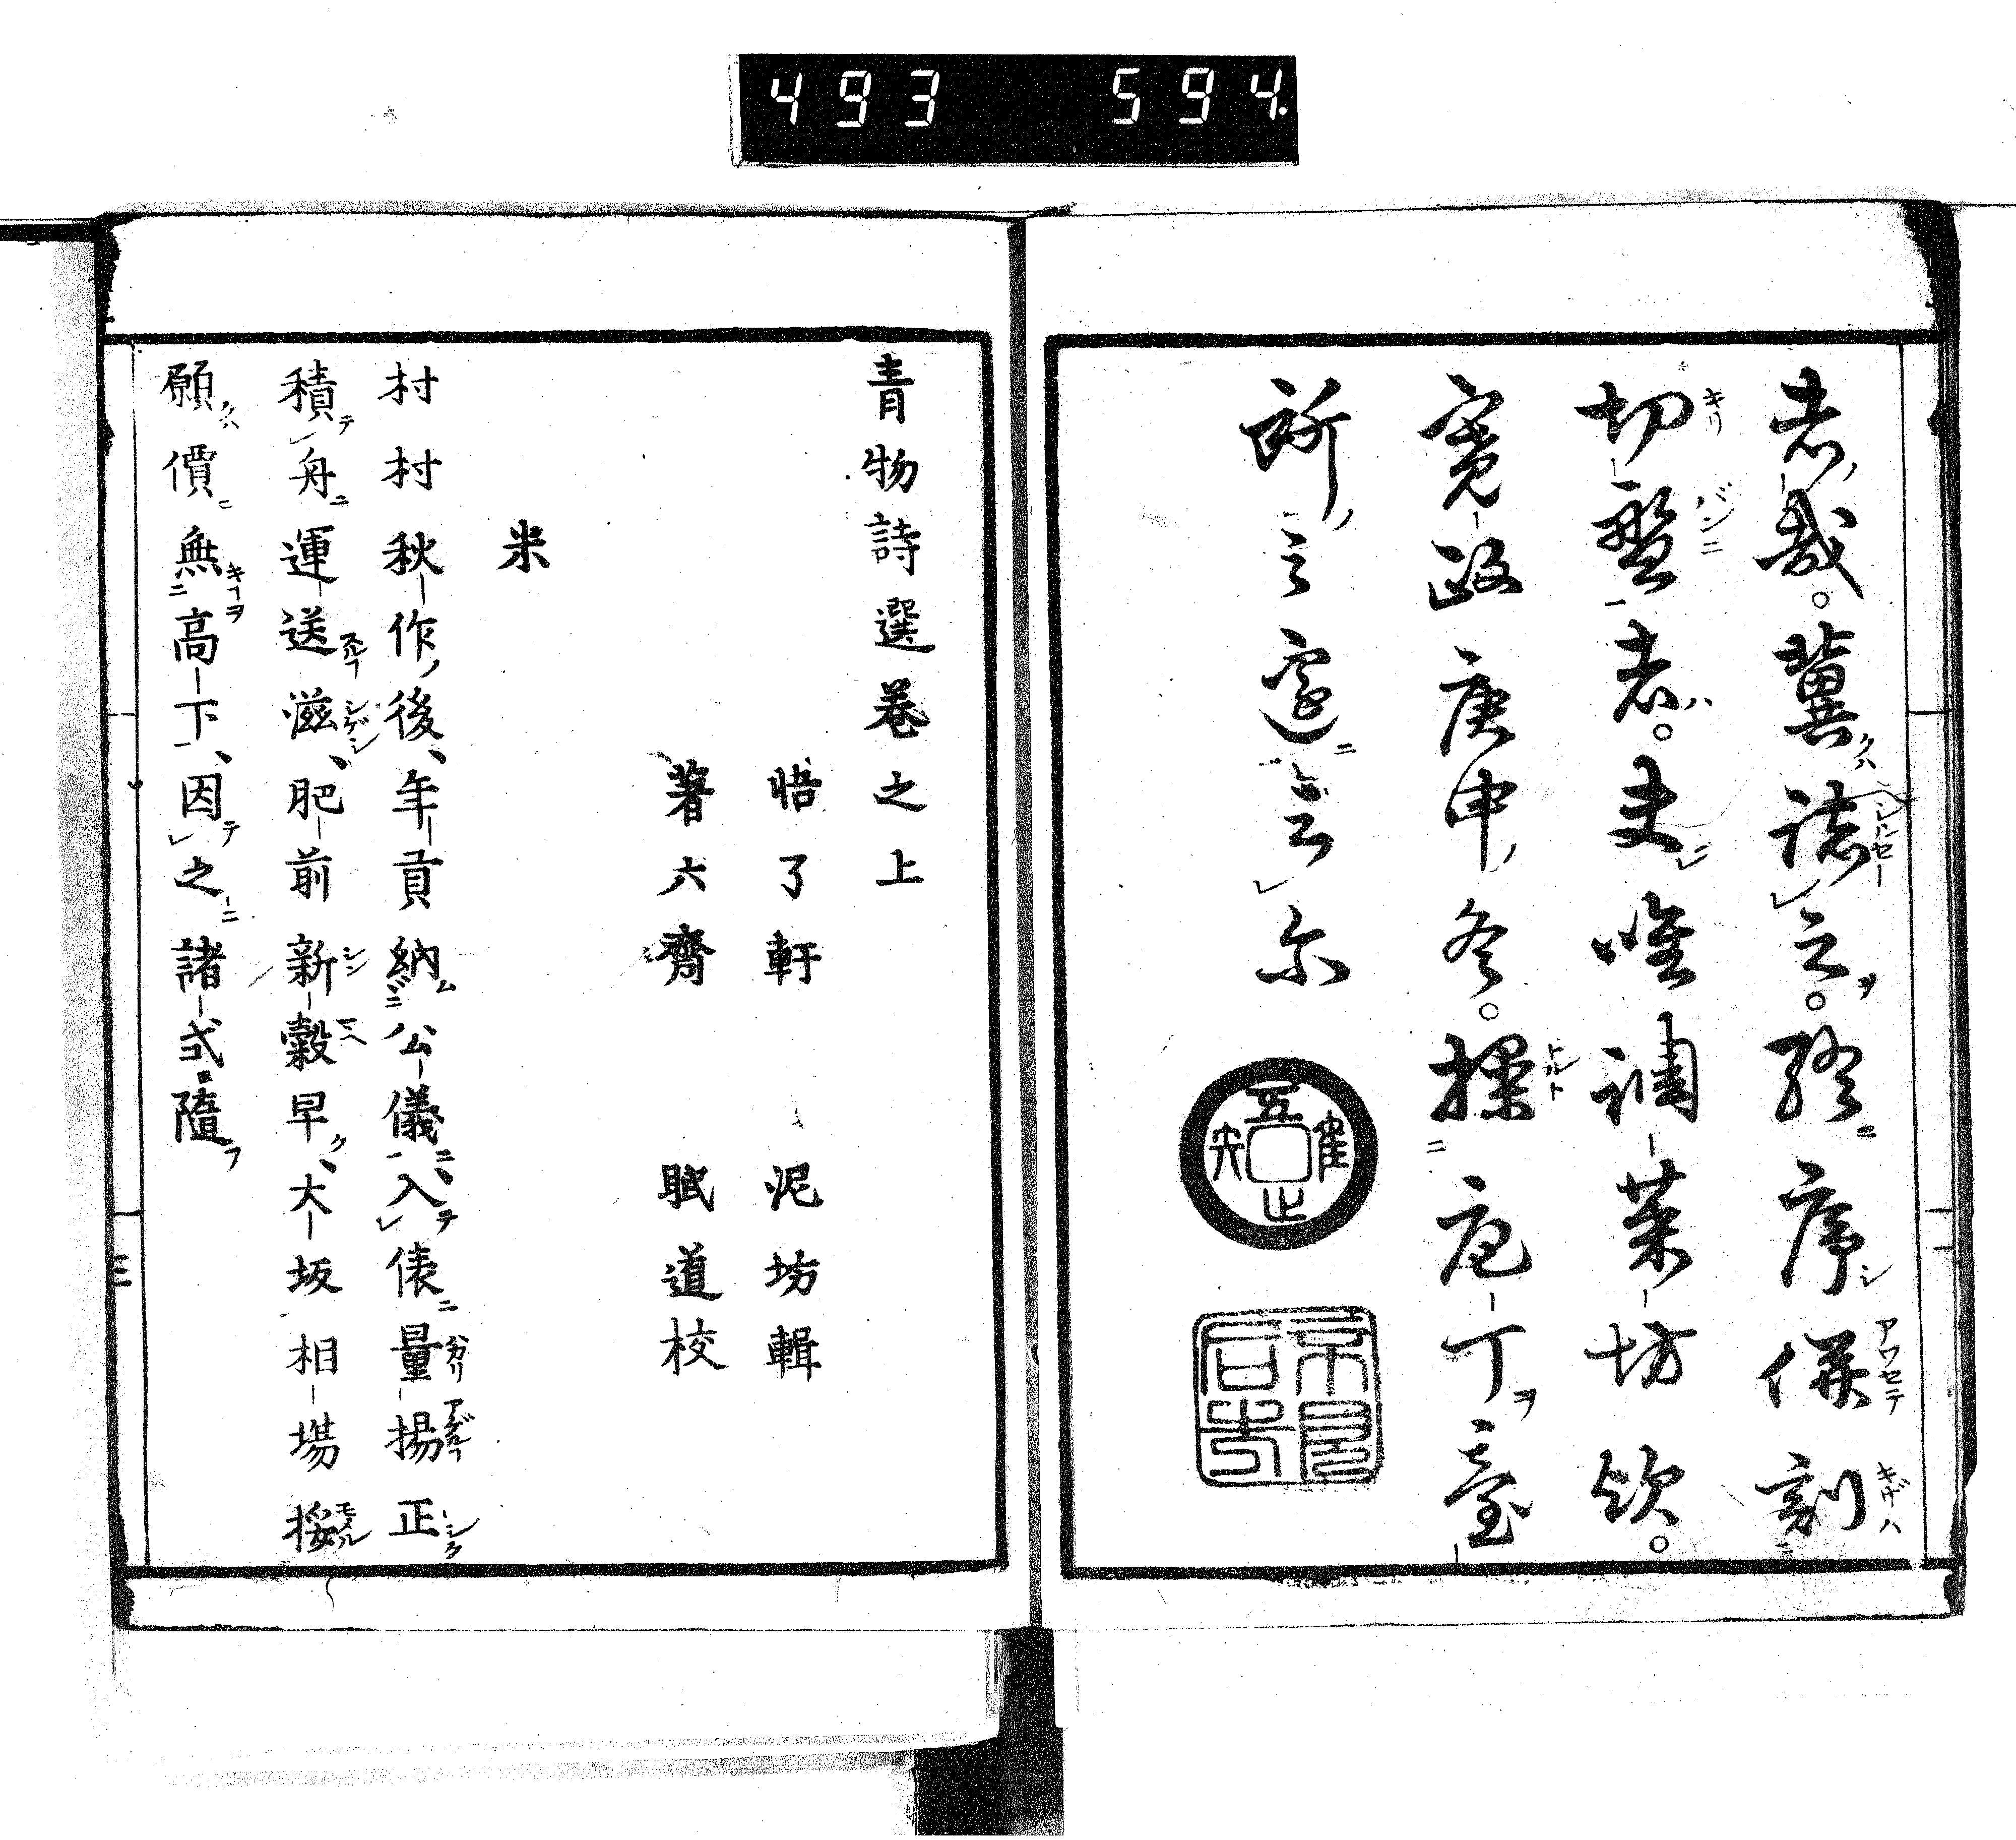 493 594.
者哉。冀誌之。終序併刻
切盤者。夫唯調菜坊欤。
寛政庚申冬。操庖丁臺
所之邊云尔
五隹止矢
青物詩選巻之上
悟了軒 泥坊輯
著六齋 賦道校
米
村村秋作後、年貢納公儀、入俵量揚正
積舟運送滋、肥前新穀早、大坂相場挼
願價無高下、因之諸式隨
三